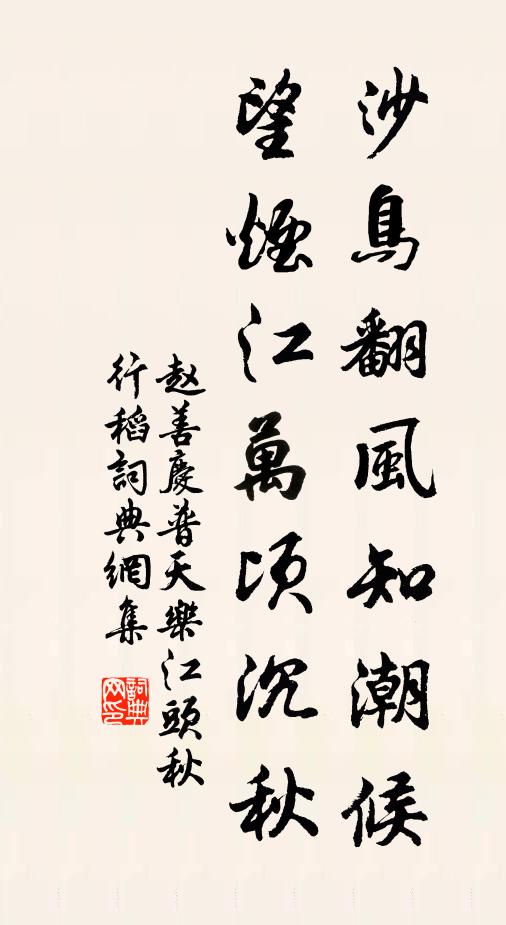 沙鳥翻風知潮候
望煙江萬頃沉秋
赵善慶普天樂江頭秋
行稻詞典網集
詞典网印